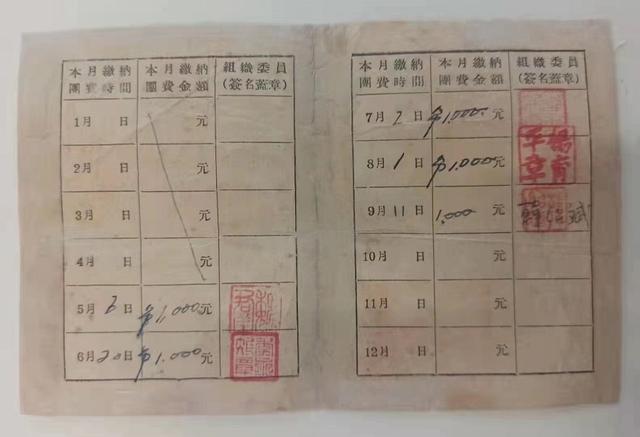 本月繳納 本月繳納 組織委員
團費時間 團費金額 (簽名蓋章)
1月 日 元
2月 日 元
3月 日 元
4月 日 元
5月 6日 ¥1,000元
6月20日 ¥1,000元
本月繳納 本月繳納 組織委員
團費時間 團費金額 (簽名蓋章)
7月 2日 ¥1,000元
8月 1日 ¥1,000元
9月 11日 1,000元
10月 日 元
11月 日 元
12月 日 元